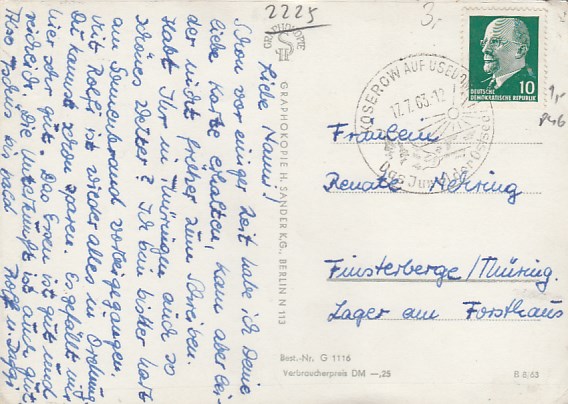 2225
3,-
Liebe Hanni!
Schon vor einiger Zeit habe ich Deine
liebe Karte erhalten, kam aber lei-
der nicht früher zum Schreiben.
Habt Ihr in Thüringen auch so
schönes Wetter? Ich bin bitter hart
am Sonnenbrand vorbeigegangen.
Mit Rolfi ist wieder alles in Ordnung.
Du kannst schon sparen. Es gefällt mir
hier sehr gut. Das Essen ist gut und
reichlich. Die Unterkunft ist auch gut.
GRAPHOKOPIE
SH
GRAPHOKOPIE H. SANDER K.G., BERLIN N 113
KOSEROW AUF USEDOM
17.7.63-12
Das Ostseebad
DEUTSCHE
DEMOKRATISCHE REPUBLIK
10
1,-
P46
Fräulein
Renate Mehring
Finsterberge/Thüring.
Lager am Forsthaus
Best.-Nr. G 1116
Verbraucherpreis DM —,25
B 8/63